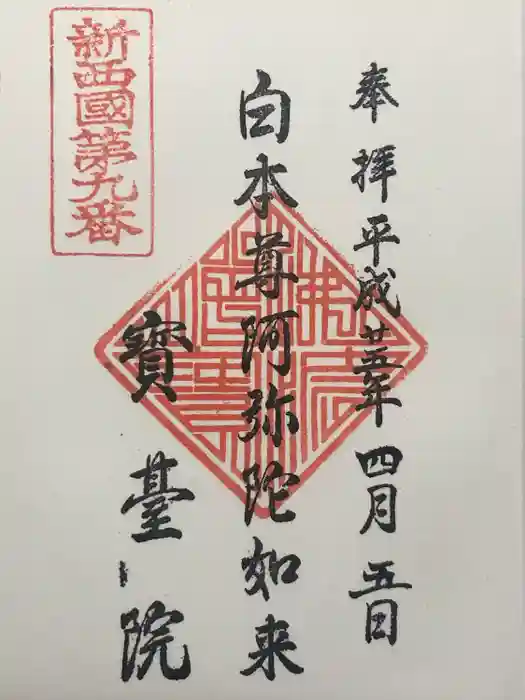 奉拝平成廿五年四月五日
白本尊阿弥陀如来
寶臺院
新西國第九番